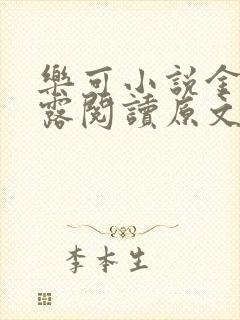 樂可小說金
露閱讀原文
李本生